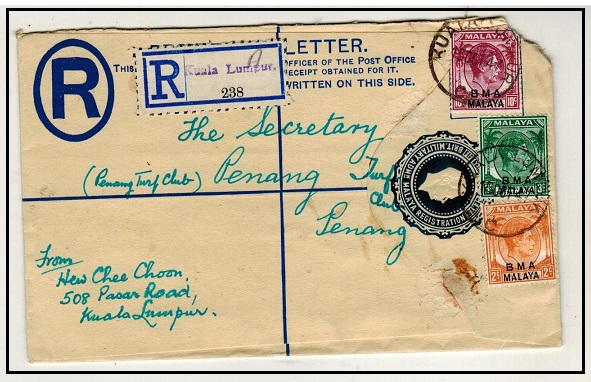 LETTER.
THIS
OFFICER OF THE POST OFFICE
RECEIPT OBTAINED FOR IT.
WRITTEN ON THIS SIDE.
R
R
Kuala Lumpur.
238
The Secretary
(Penang Turf Club)
Penang Turf
Club
Penang
From
Hew Chee Choon,
508 Pasar Road,
Kuala Lumpur.
BRIT. MILITARY ADMN MALAYA REGISTRATION
10c 10c
BMA
MALAYA
MALAYA
3c 3c
BMA
MALAYA
MALAYA
2c 2c
BMA
MALAYA